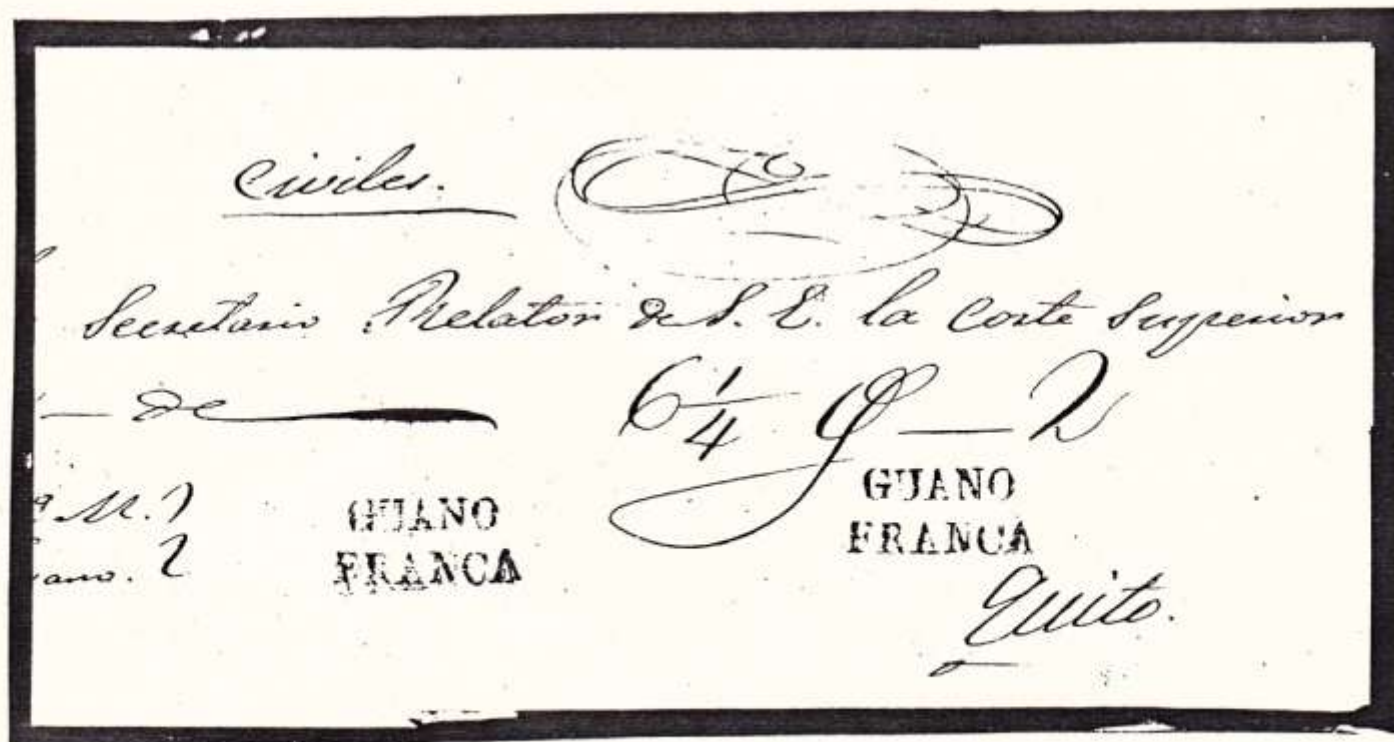 Civiles.
Secretario Relator de S. E. la Corte Superior
— de —
6 1/4 — 2
M.
GUANO
FRANCA
GUANO
FRANCA
Quito.